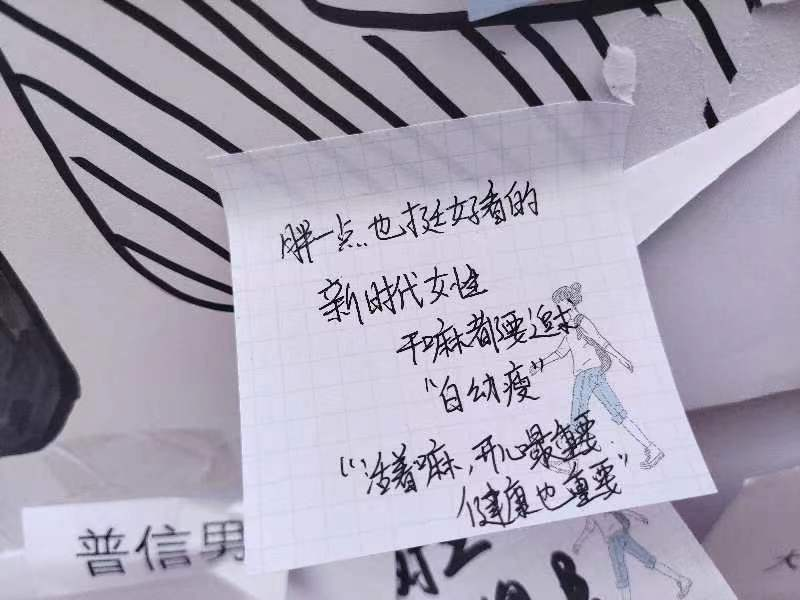 胖一点也挺好看的
新时代女性
干嘛都要追求
“白幼瘦”
“活着嘛,开心最重要
健康也重要”
普信男